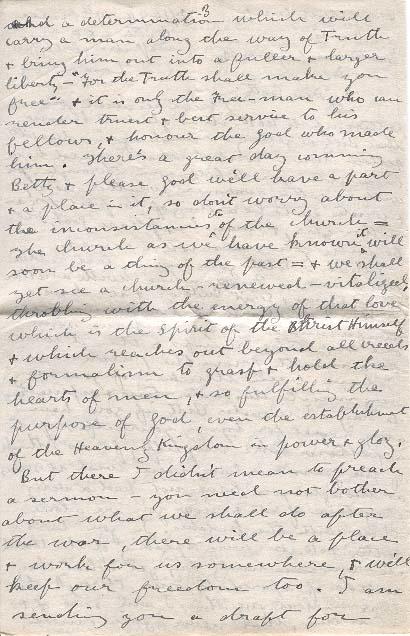 3
and a determination which will
carry a man along the way of Truth
& bring him out into a fuller & larger
liberty - "For the Truth shall make you
free" & it is only the Free-man who can
render truest & best service to his
fellows, & honour the god who made
him. There's a great day comming
Betty & please god we'll have a part
& a place in it, so don't worry about
the inconsistancies of the church =
The church as we have known it will
soon be a thing of the past = & we shall
yet see a church - renewed - vitalized,
throbbing with the energy of that love
which is the spirit of the Christ Himself
& which reaches out beyond all creeds
& formalism to grasp & hold the
hearts of men, & so fulfilling the
purpose of God, even the establishment
of the Heavenly Kingdom in power & glory.
But there I didn't mean to preach
a sermon - you need not bother
about what we shall do after
the war, there will be a place
& work for us somewhere, & we'll
keep our freedom too. I am
sending you a draft for